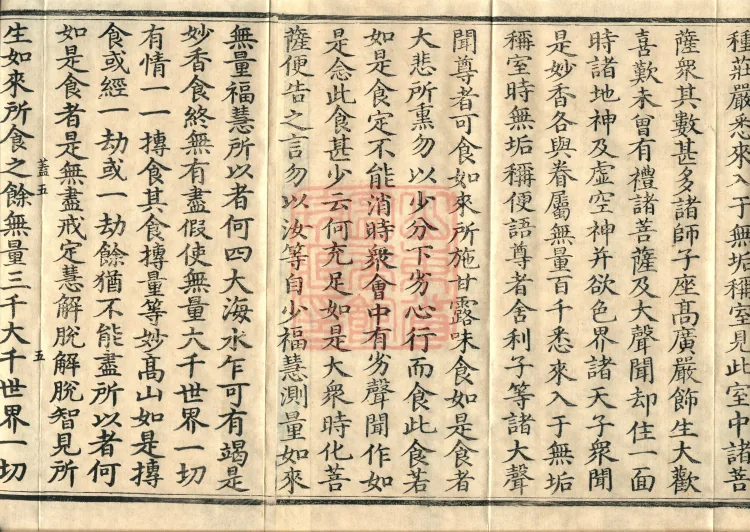 種莊嚴悉來入于無垢稱室見此室中諸菩
薩衆其數甚多諸師子座高廣嚴飾生大歡
喜歎未曾有禮諸菩薩及大聲聞却住一面
時諸地神及虛空神并欲色界諸天子衆聞
是妙香各與眷屬無量百千悉來入于無垢
稱室時無垢稱便語尊者舍利子等諸大聲
聞尊者可食如來所施甘露味食如是食者
大悲所熏勿以少分下劣心行而食此食若
如是食定不能消時衆會中有劣聲聞作如
是念此食甚少云何充足如是大衆時化菩
薩便告之言勿以汝等自少福慧測量如來
無量福慧所以者何四大海水乍可有竭是
妙香食終無有盡假使無量六千世界一切
有情一一摶食其食摶量等妙高山如是摶
食或經一劫或一劫餘猶不能盡所以者何
如是食者是無盡戒定慧解脫解脫智見所
蓋五
五
生如來所食之餘無量三千大千世界一切